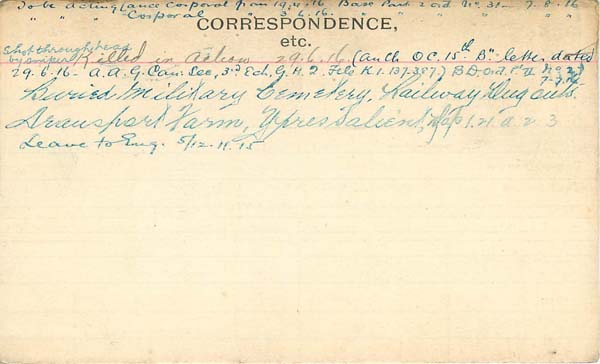 To be Acting Lance Corporal from 19.4.16 Base Part 2 Ord No. 31 - 7.8.16
" Corporal " 3.6.16. " " " " "
CORRESPONDENCE,
etc.
Shot through head
by sniper Killed in Action 29.6.16 (Auth OC. 15th Bn letter dated
29.6.16 - A.A.G. Can. Sec, 3rd Ech, G.H.Q. File K1.137.357.) B.D.O.d. Pt II No 27
7-7-16
Buried Military Cemetery, Railway Dugouts
Transport Farm, Ypres Salient, 1.21.a.2.3
Leave to Eng. 5/12.11.15